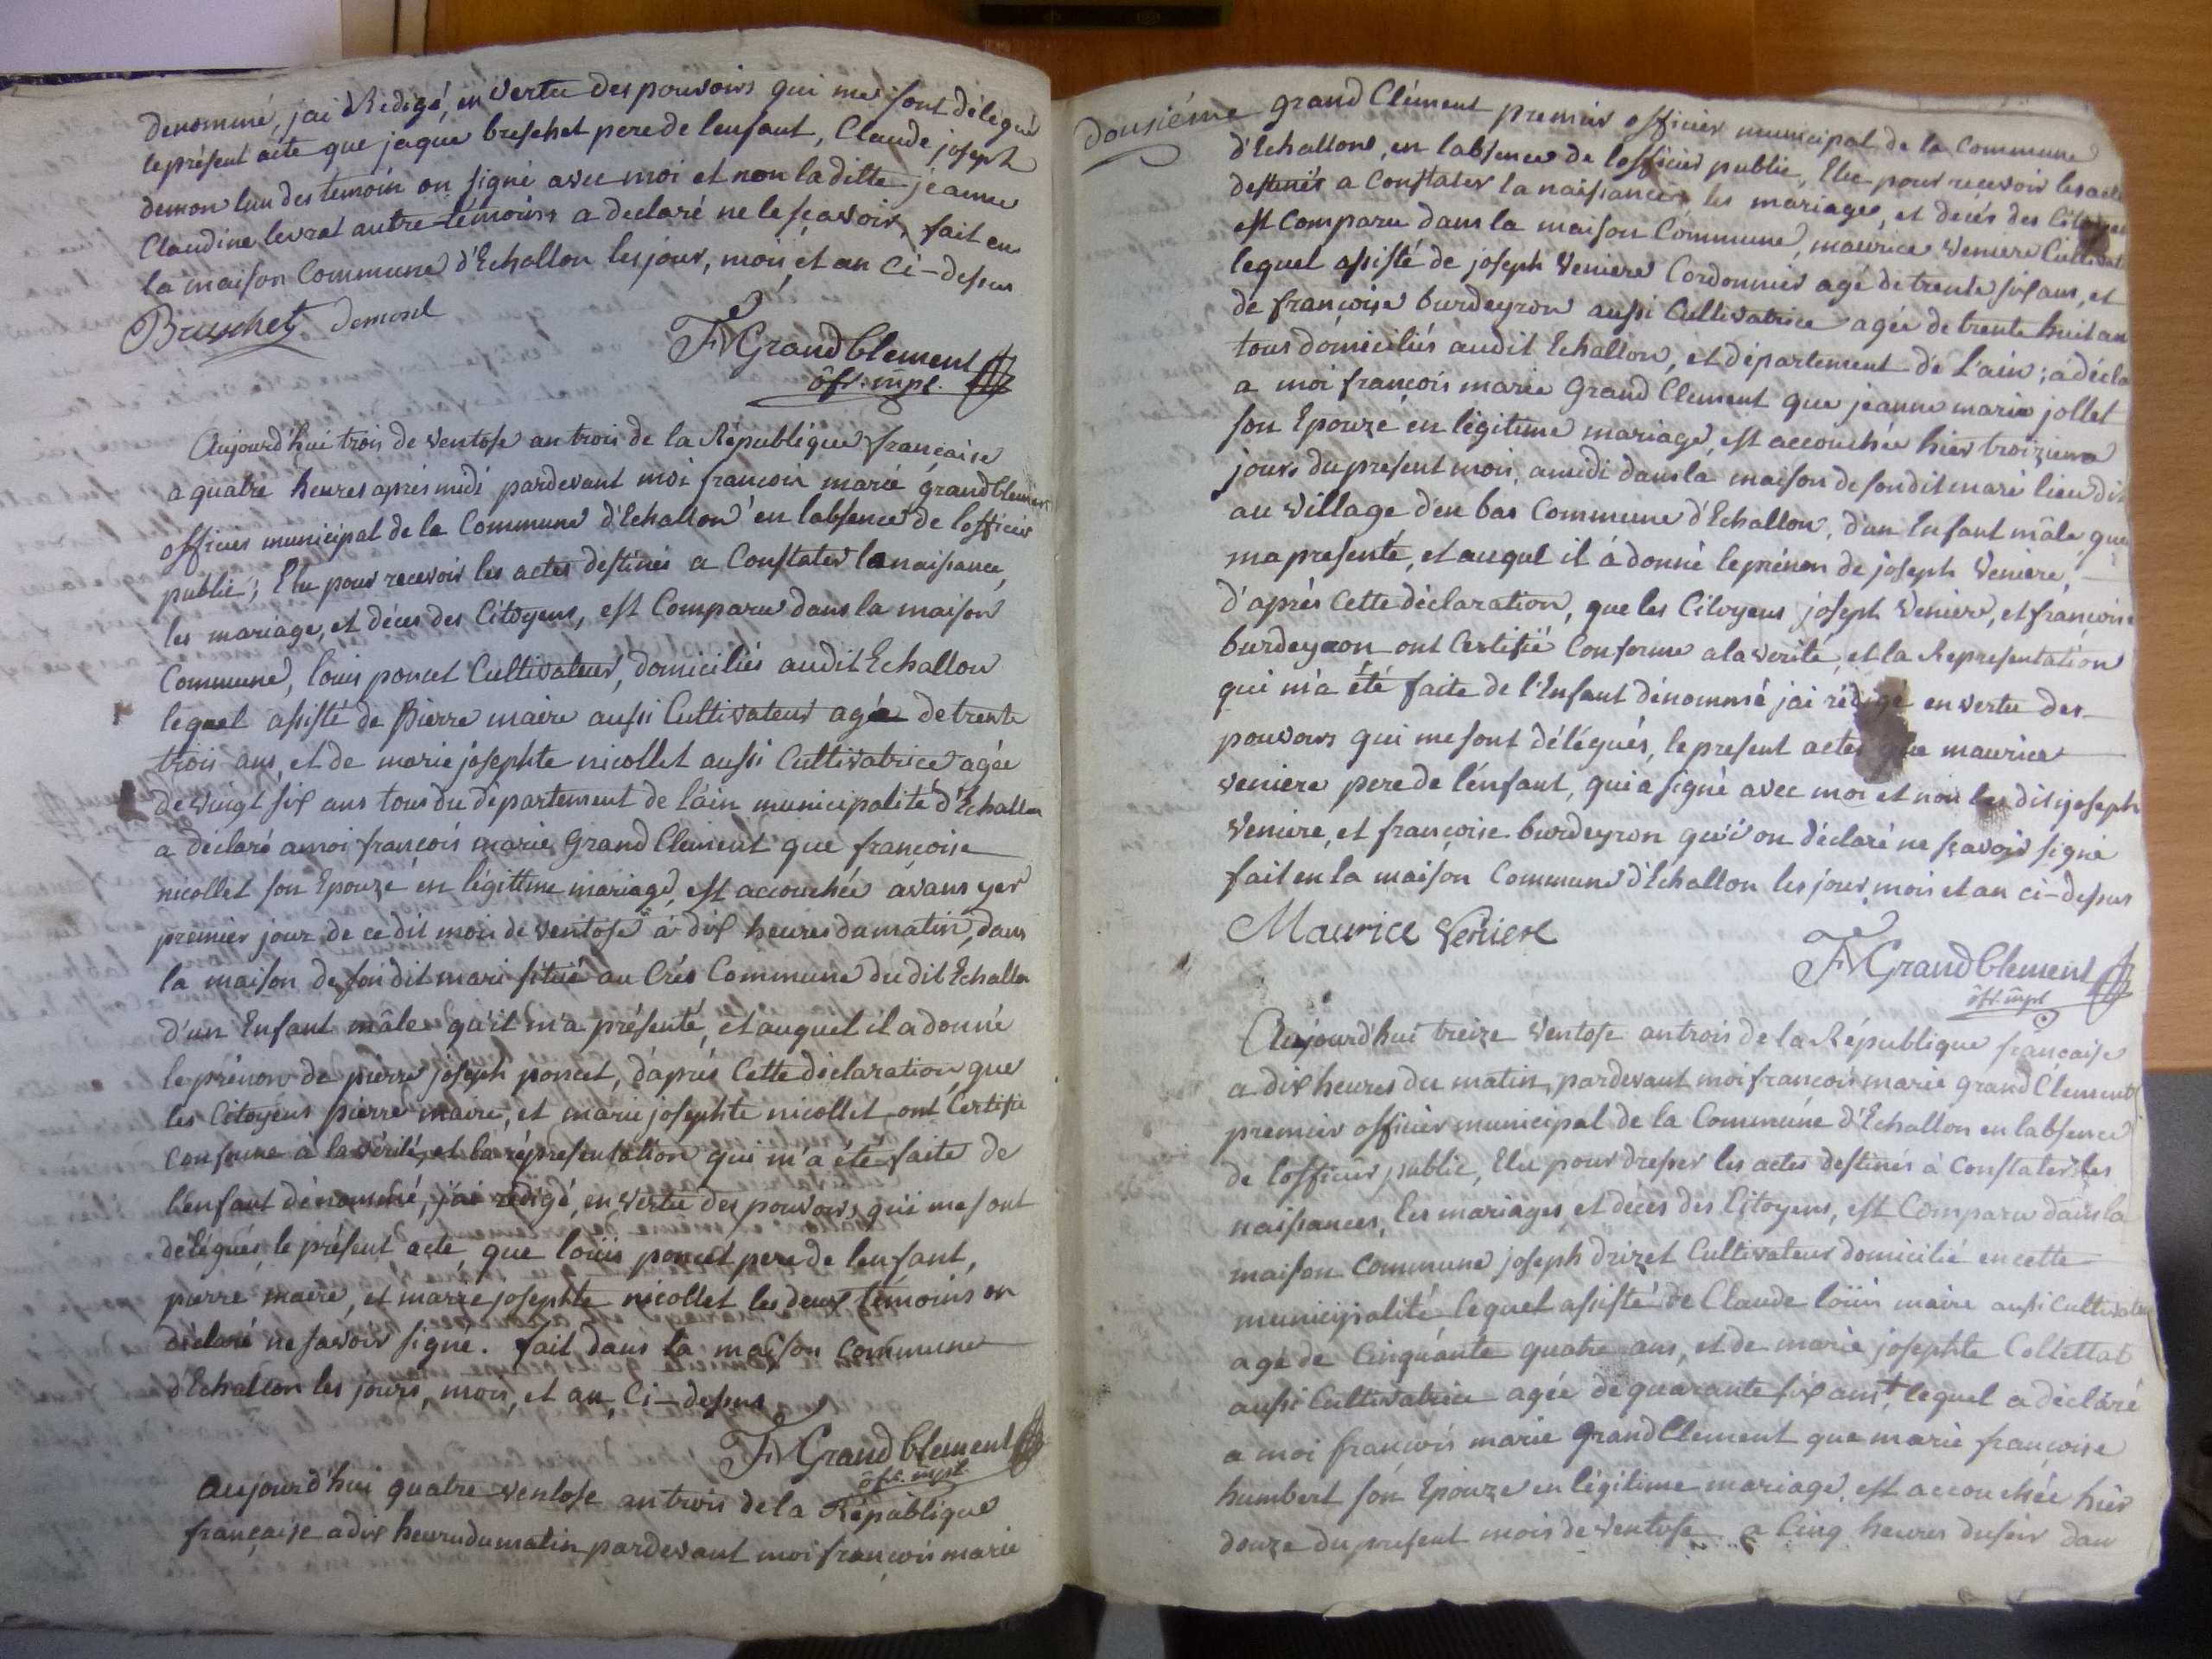 denommé, j'ai Rédigé, en vertu des pouvoirs qui me sont délégué
le présent acte que jaque breschet pere de lenfant, Claude joseph
demon lun des temoin on signé avec moi et non la ditte jeanne
Claudine levrat autre témoins a declaré ne le sçavoir, fait en
la maison Commune d'Echallon les jour, mois et an Ci-dessus
Bruschet demond
FM Grandclement
off. mpl.
Aujourd'hui trois de ventose an trois de la République française
a quatre heures après midi pardevant moi francois marie grandclement
officier municipal de la Commune d'Echallon en labsence de lofficier
public, Elu pour recevoir les actes destinés a Constater la naissance,
les mariage, et décès des Citoyens, est Comparu dans la maison
Commune, louis poncet Cultivateur, domiciliés audit Echallon
lequel assisté de Pierre maire aussi Cultivateur agée de trente
trois ans, et de marie josephte nicollet aussi Cultivatrice agée
de vingt six ans tous du département de l'ain municipalité d'Echallon
a déclaré a moi francois marie Grand Clement que françoise
nicollet son Epouze en légittime mariage, est accouchée avans yer
premier jour de ce dit mois de ventose à dix heures du matin, dans
la maison de son dit mari situé au Crés Commune du dit Echallon
d'un Enfant mâle qu'il m'a présenté, et auquel il a donné
le prénom de pierre joseph poncet, d'après Cette déclaration que
les Citoyens pierre maire, et marie josephte nicollet ont Certifié
Conforme a la vérité, et la réprésentation qui m'a été faite de
l'enfant dénommé, j'ai redigé, en vertu des pouvoirs qui me sont
délégués, le présent acte, que loüis poncet pere de lenfant,
pierre maire, et marie josephte nicollet les deux témoins on
déclaré ne savoir signé. fait dans la maison commune
d'Echallon les jours, mois, et an, Ci-dessus
FM Grandclement
off. mpl.
Aujourd'hui quatre ventose an trois de la République
française a dix heures du matin pardevant moi françois marie
dousiéme
grand Clément premier officier municipal de la Commune
d'Echallon, en labsence de lofficier public, Elu pour recevoir les actes
destinés a Constater la naissances, les mariages, et décés des Citoyens
est Comparu dans la maison Commune, maurice Veniere Cultivat
lequel assisté de joseph Veniere Cordonnier agé de trente six ans, et
de françoise burdeyron aussi Cultivatrice agée de trente huit an
tous domiciliés audit Echallon, et département de L'ain; à décla
a moi françois marie Grand Clement que jeanne marie jollet
son Epouze en légitime mariage, est accouchée hier troizieme
jours du present mois, a midi dans la maison de son dit mari lieu dit
au village d'en bas Commune d'Echallon, d'un Enfant mâle, que
ma presenté, et auquel il à donné le prénom de joseph Veniere,
d'après Cette déclaration, que les Citoyens joseph Veniere, et françoise
burdeyron ont Certifié Conforme a la verité, et la Representation
qui m'a été faite de l'Enfant dénommé j'ai rédigé en vertu des
pouvoirs qui me sont délégués, le present acte, que maurice
veniere pere de l'énfant, qui a signé avec moi et non les dit joseph
Veniere, et françoise burdeyron qu'i on déclaré ne sçavoir signé
fait en la maison Commune d'Echallon les jour, mois et an ci-dessus
Maurice Veniere
FM Grandclement
off. mpl
Aujourd'hui treize Ventose an trois de la République française
a dix heures du matin, pardevant moi françois marie grand Clement
premier officier municipal de la Commune d'Echallon en labsence
de lofficier public, Elu pour dresser les actes destinés à Constater les
naissances, les mariages, et décès des Citoyens, est Comparu dans la
maison Commune joseph drizet Cultivateur domicilié en cette
municipalité, lequel assisté de Claude loüis maire aussi Cultivateur
agé de Cinquante quatre ans, et de marie josephte Collettat
aussi Cultivatrice agée de quarante six ans, lequel a déclaré
a moi françois marie Grand Clement que marie françoise
humbert son Epouze en légitime mariage, est accouchée hier
douze du present mois de ventose a Cinq heures du soir dan